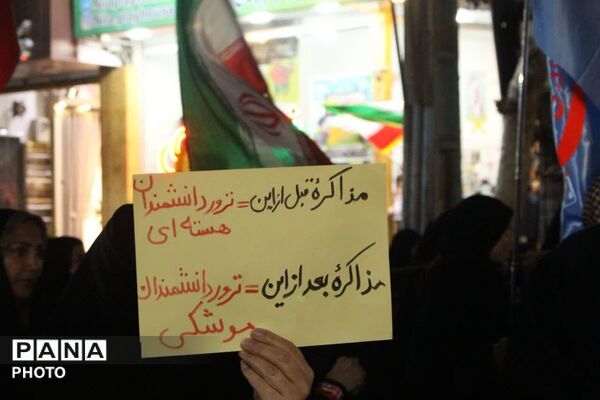 مذاکرهٔ قبل از این = ترور دانشمندان
هسته ای
مذاکرهٔ بعد از این = ترور دانشمندان
موشکی
PANA
PHOTO